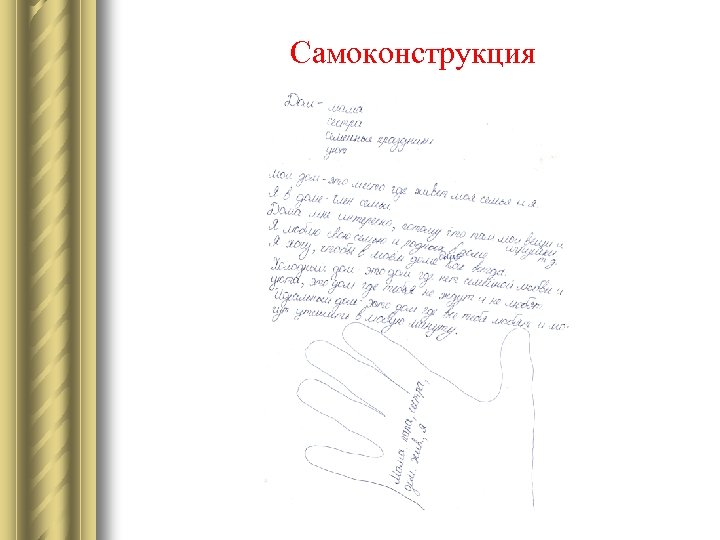 Самоконструкция
Дом - мама
сестра
семейные праздники
уют
Мой дом - это место где живёт моя семья и я
Я в доме - член семьи
Дома мне интересно, потому что там мои вещи и
игрушки и т.д.
Я люблю свою семью и родных в доме
Я хочу, чтобы в моём доме были все всегда.
Холодный дом - это дом где нет семейной любви и
уюта, это дом где тебя не ждут и не любят
Идеальный дом - это дом где все тебя любят и мо-
гут утешить в любую минуту.
Мама папа, сестра,
дом. жив., я